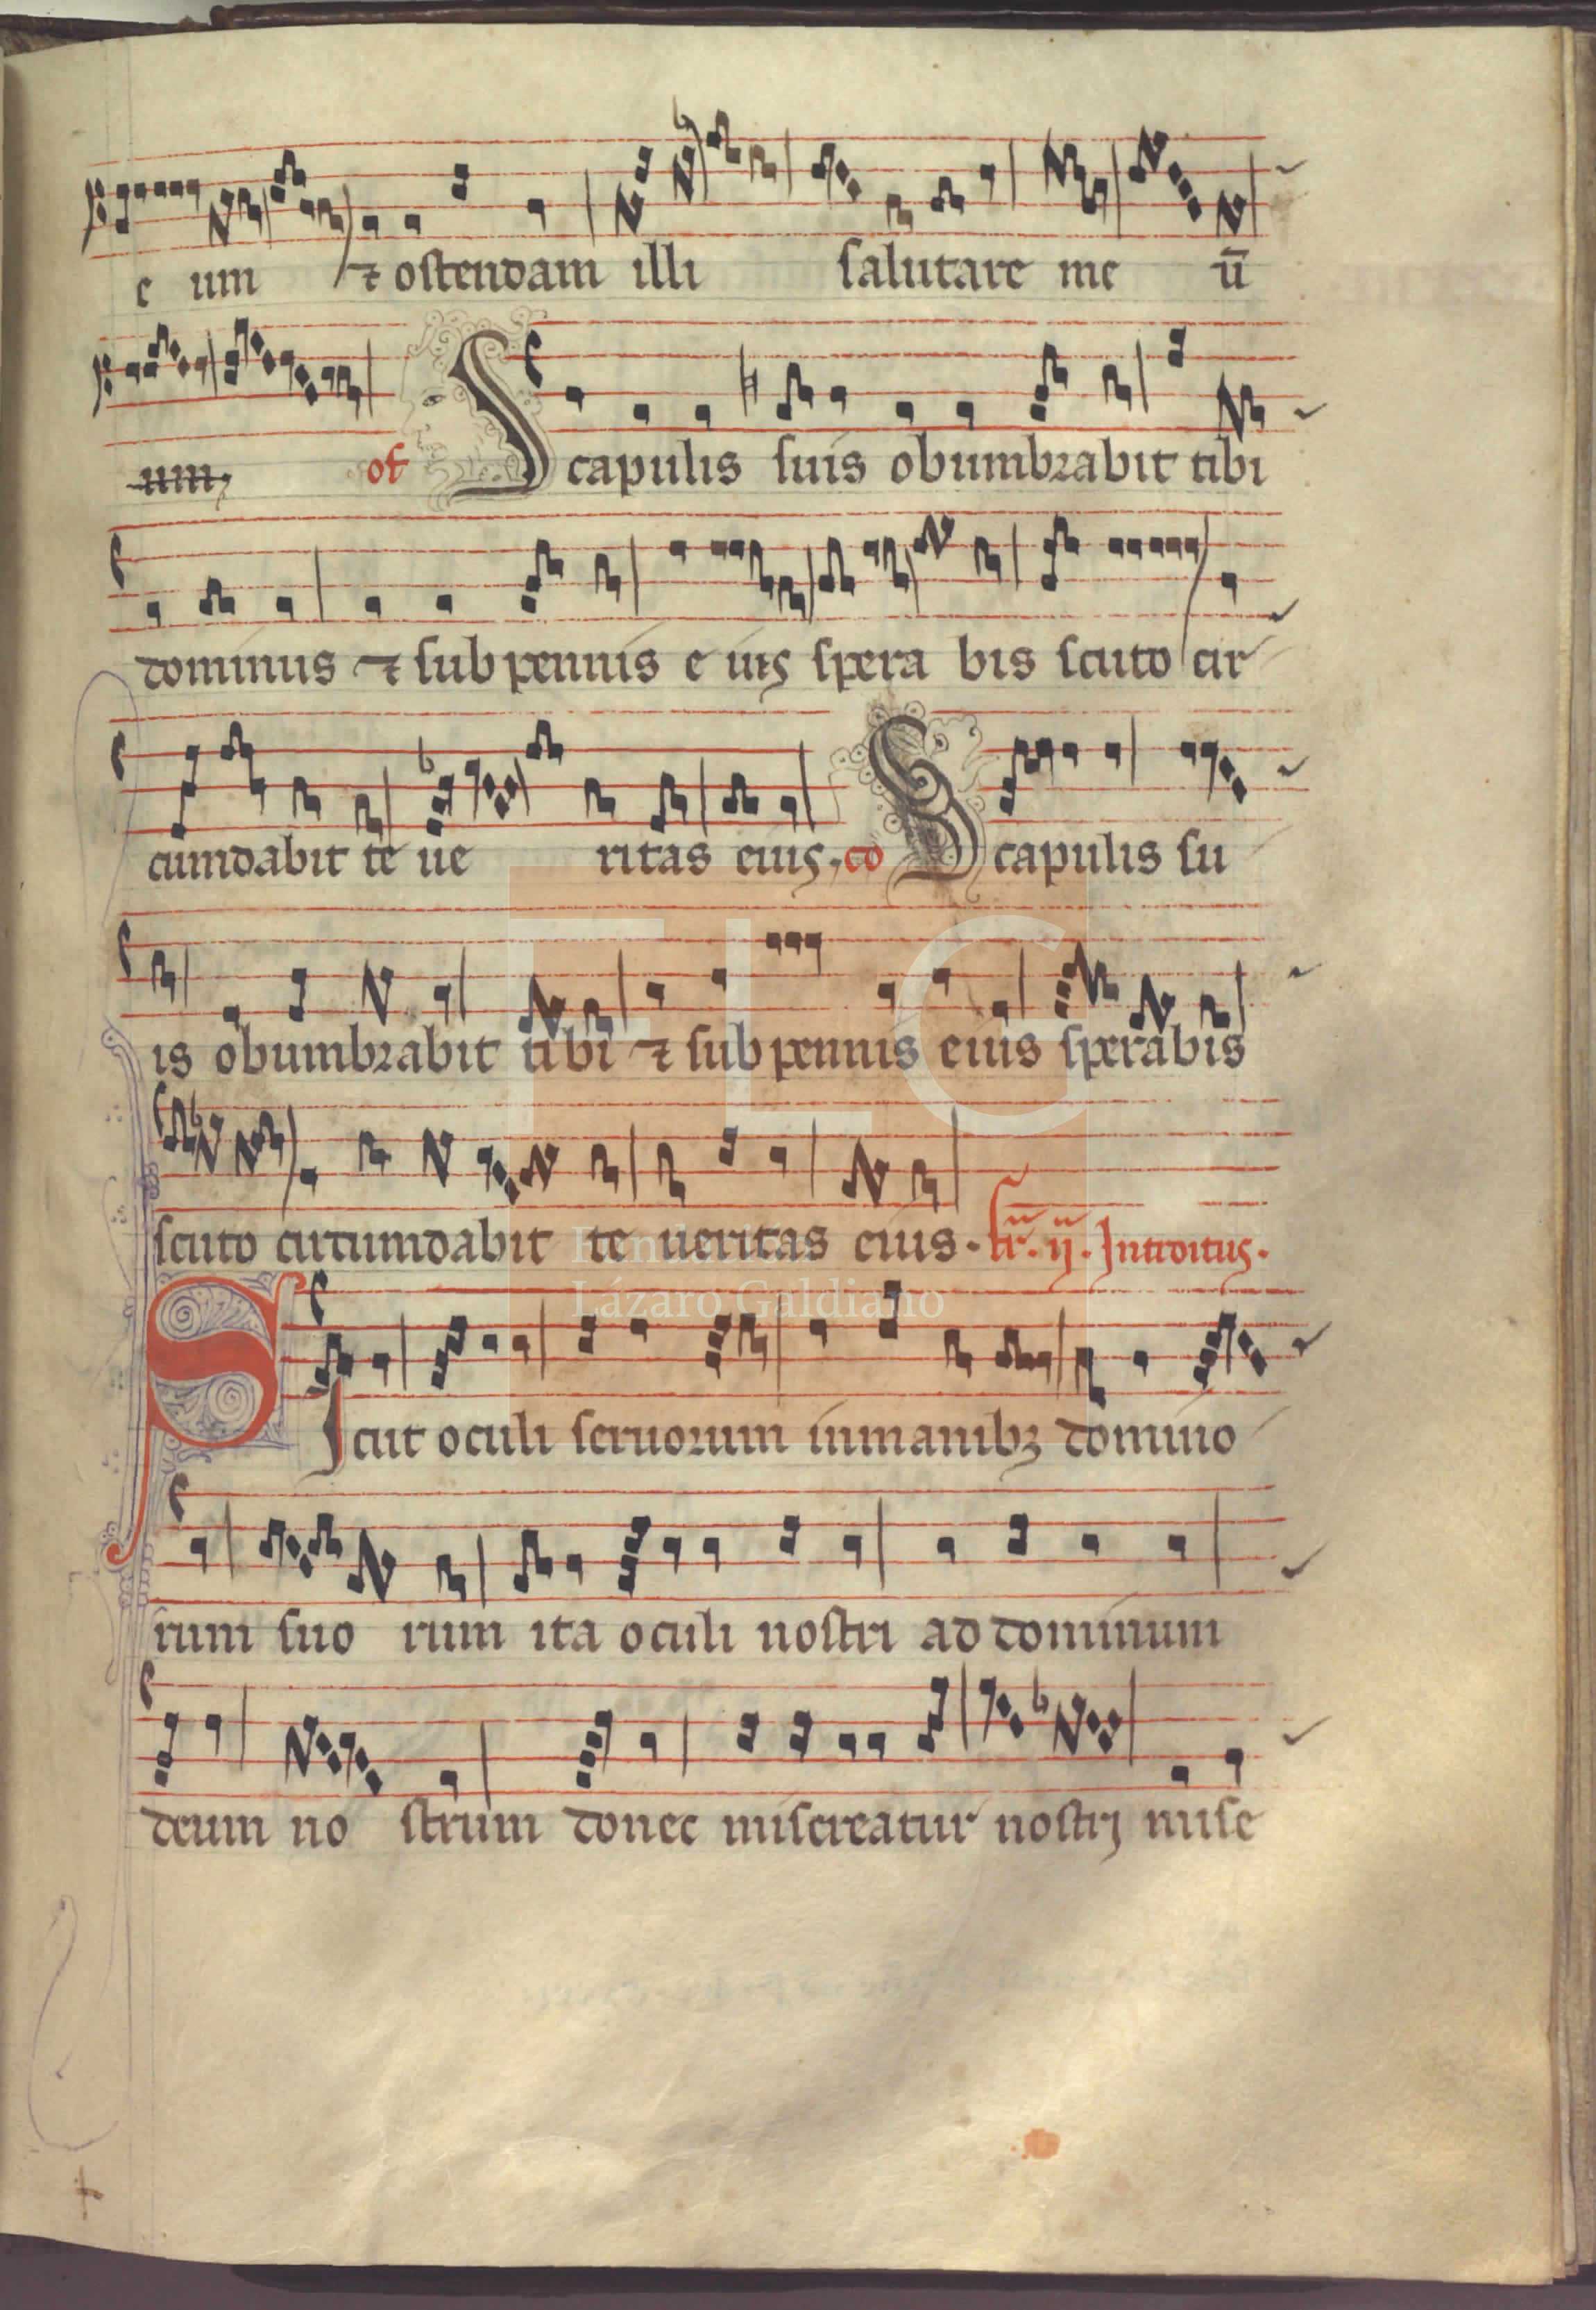 e um ⁊ ostendam illi salutare me ū
um of Scapulis suis obumbrabit tibi
dominus ⁊ sub pennis e iꝰ spera bis scuto cir
cumdabit te ue ritas eiꝰ. co Scapulis su
is obumbrabit tibi ⁊ sub pennis eius sperabis
scuto circumdabit te ueritas eius. fr̄. ij. Introitꝰ.
FLG
Fundación
Lázaro Galdiano
SIcut oculi seruorum in manibꝫ domino
rum suo rum ita oculi nostri ad dominum
deum no strum donec misereatur nostrj mise